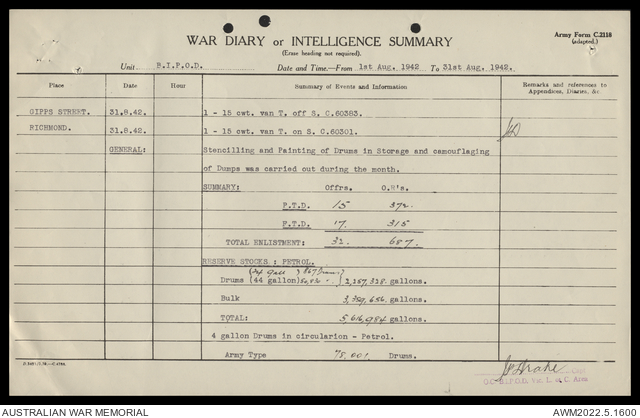 Army Form C.2118
(adapted.)
WAR DIARY or INTELLIGENCE SUMMARY
(Erase heading not required).
Unit B.I.P.O.D. Date and Time—From 1st Aug. 1942 To 31st Aug. 1942.
Place Date Hour Summary of Events and Information Remarks and references to Appendices, Diaries, &c
GIPPS STREET. 31.8.42. 1 - 15 cwt. van T. off S. C.60383.
RICHMOND. 31.8.42. 1 - 15 cwt. van T. on S. C.60301.
GENERAL: Stencilling and Painting of Drums in Storage and camouflaging
of Dumps was carried out during the month.
SUMMARY: Offrs. O.R's.
P.T.D. 15 372.
F.T.D. 17. 315
TOTAL ENLISTMENT: 32. 687.
RESERVE STOCKS : PETROL.
Drums (44 gallon) gallons.
Bulk gallons.
TOTAL: 5,616,984 gallons.
4 gallon Drums in circularion - Petrol.
Army Type 75,001 Drums.
Capt
O.C. B.I.P.O.D. Vic. L. of C. Area
AUSTRALIAN WAR MEMORIAL AWM2022.5.1600